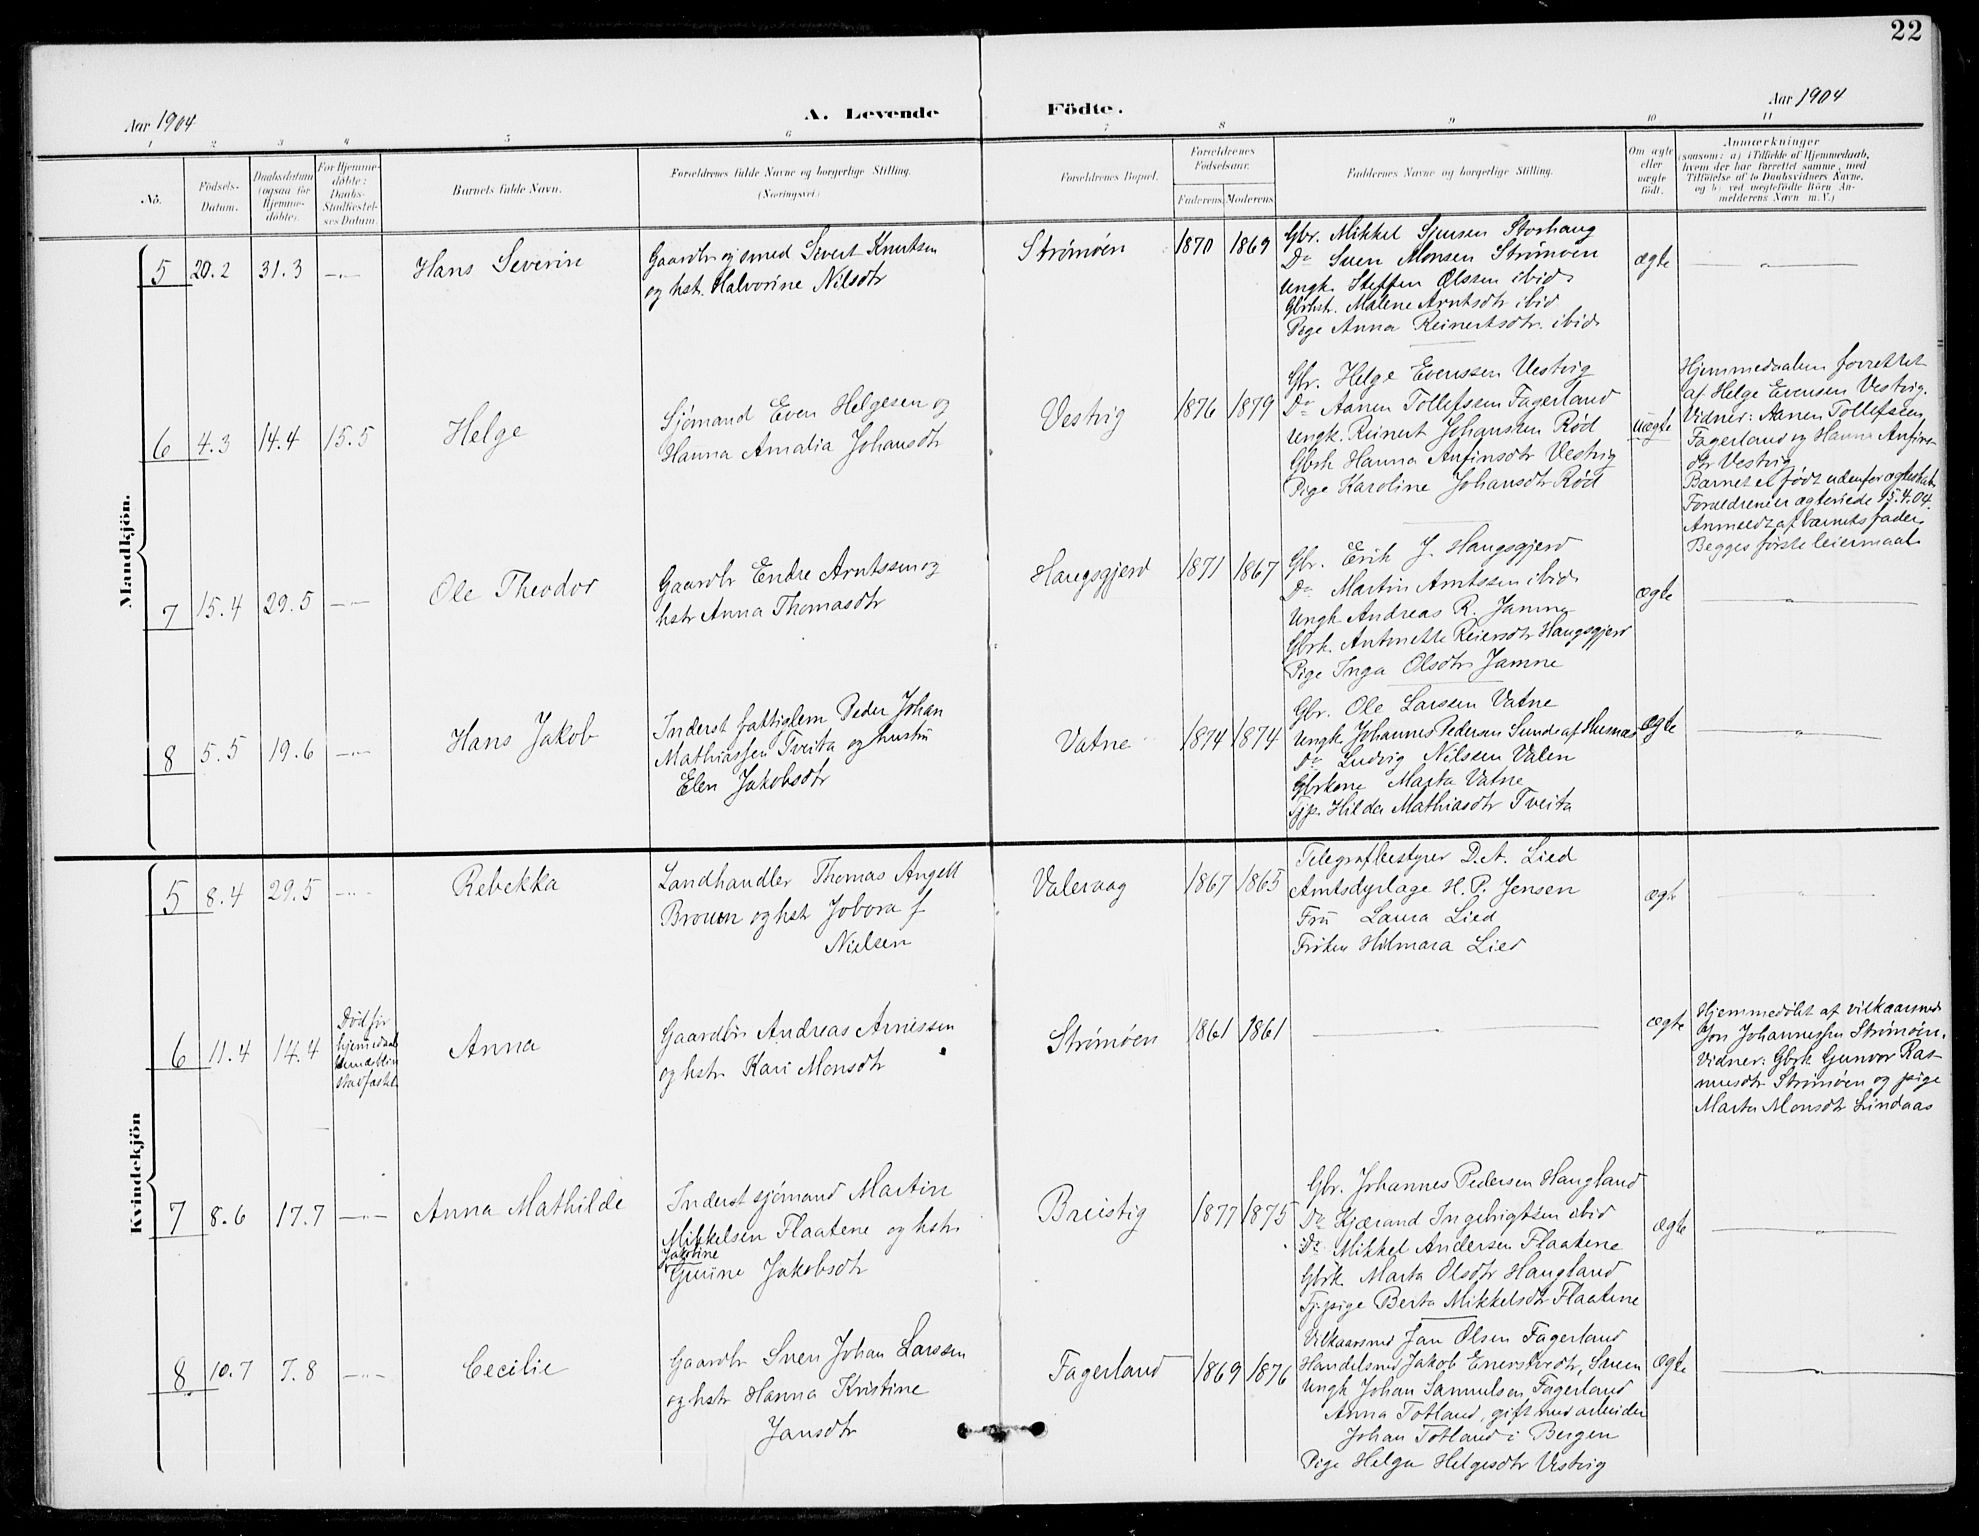 22
Aar 1904
A. Levende
Födte.
Aar 1904
1 2 3 4 5 6 7 8 9 10 11
No.
Födsels-
Datum.
Daabsdatum
(ogsaa for
Hjemme-
døbte).
For Hjemme-
døbte:
Daabs-
Stadfæstel-
ses Datum.
Barnets fulde Navn.
Forældrenes fulde Navne og borgerlige Stilling.
(Næringsvei.)
Forældrenes Bopæl.
Forældrenes
Fødselsaar.
Faderens.
Moderens.
Faddernes Navne og borgerlige Stilling.
Om ægte
eller
uægte
født.
Anmærkninger
(saasom: a) i Tilfælde af Hjemmedaab,
hvem der har forrettet samme, med
Tilføielse af to Daabsvidners Navne,
og b) ved uægtefödte Börn An-
melderens Navn m. V.)
Mandkjön.
5
20.2
31.3
Hans Severin
Gaardbr og smed Sivert Knutsen
og hstr. Halvorine Nilsdtr
Strømøen
1870
1869
Gbr. Mikkel Sjursen Storhaug
Do Sven Monsen Strømøen
Ungk. Steffen Olssen ibid.
Gbrhst. Malene Arntsdtr ibid
Pige Anna Reinertsdtr. ibid.
ægte
6
4.3
14.4
15.5
Helge
Sjømand Even Helgesen og
Hanna Amalia Johansdtr
Vestvig
1876
1879
Gbr. Helge Evenssen Vestvig
Do Aanen Tollefsen Fagerland
Ungk. Reinert Johansen Rød
Gbrk Hanna Anfinsdtr Vestvig
Pige Karoline Johansdtr Rød
uægte
Hjemmedaaben forrettet
af Helge Evensen Vestvig.
Vidner: Aanen Tollefsen
Fagerland og Hanna Anfins-
dtr Vestvig
Barnet er født udenfor ægteskab.
Forældrene er ægteviede 15.4.04.
Anmeldt af barnets fader.
Begges første leiermaal.
7
15.4
29.5
Ole Theodor
Gaardbr Endre Arntssen og
hstr Anna Thomasdtr
Haugsgjerd
1871
1867
Gbr. Erik J. Haugsgjerd
Do Martin Arntssen ibid.
Ungk Andreas R. Jamne
Gbrk. Antonette Reiersdtr Haugsgjerd
Pige Inga Olsdtr Jamne
ægte
8
5.5
19.6
Hans Jakob
Inderst fattiglem Peder Johan
Mathiassen Tveita og hustru
Elen Jakobsdtr
Vatne
1874
1874
Gbr. Ole Larssen Vatne
Ungk Johannes Pedersen Sunde af Husnæs
Do Ludvig Nilssen Valen
Gbrkone Marta Vatne
Tjp. Hilda Mathiasdtr Tveita
ægte
Kvindekjön
5
8.4
29.5
Rebekka
Landhandler Thomas Angell
Brouen og hst Jobora f
Nielsen
Valevaag
1867
1865
Telegrafbestyrer D.A. Lied
Amtsdyrlæge H. P. Jensen
Fru Laura Lied
Frøken Hilmara Lied
ægte
6
11.4
14.4
Død før
hjemmedaab
stadfæstet
Anna
Gaardbr Andreas Arnessen
og hstr Kari Monsdtr
Strømøen
1861
1861
ægte
Hjemmedøbt af vilkaarsmd
Jon Johannessen Strømøen.
Vidner: Gbrk Gunvor Ras-
musdtr Strømøen og pige
Marta Monsdtr Lindaas
7
8.6
17.7
Anna Mathilde
Inderst sjømand Martin
Mikkelsen Flaatene og hstr
Jakobine
Guriine Jakobsdtr
Breistig
1877
1875
Gbr. Johannes Pedersen Haugland
Do Kjærand Ingebrigtsen ibid
Do Mikkel Andersen Flaatene
Gbrk. Marta Olsdtr Haugland
Tj.pige Berta Mikkelsdtr Flaatene
ægte
8
10.7
7.8
Cecilie
Gaardbr Sven Johan Larssen
og hstr Hanna Kristine
Jansdtr
Fagerland
1869
1876
Vilkaarsmd Jan Olsen Fagerland
Handelsmd Jakob Enerstvedt,
Ungk Johan Samuelsen Fagerland
Anna Totland, gift med arbeider
Johan Totland i Bergen
Pige Helga Helgesdtr Vestvig
ægte